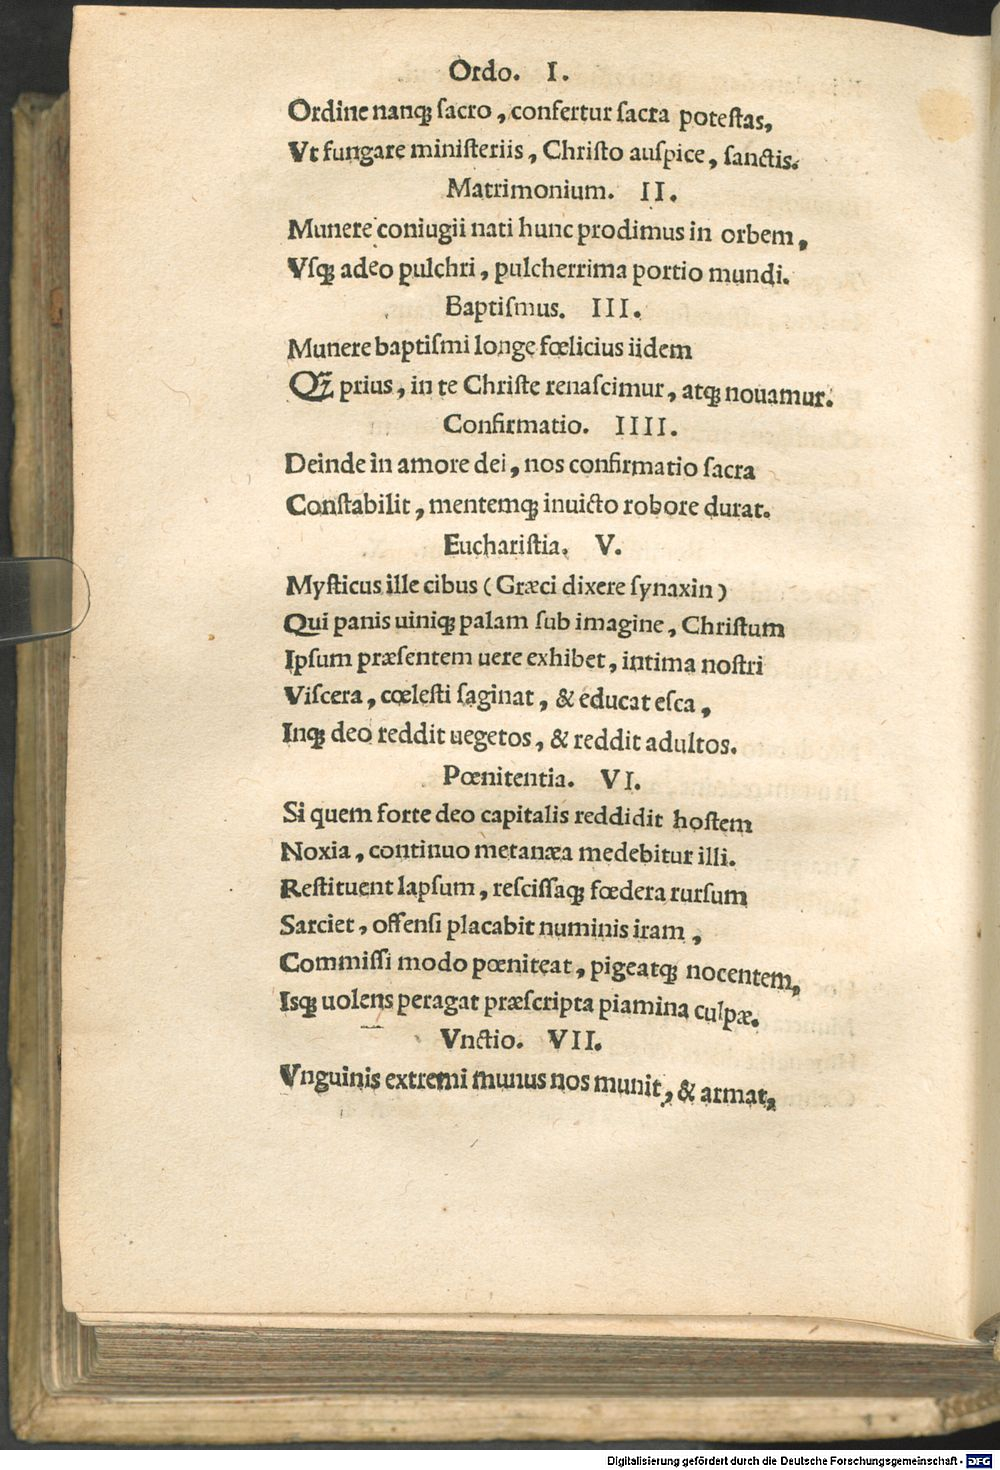 Ordo. I.
Ordine nanq; sacro, confertur sacra potestas,
Vt fungare ministeriis, Christo auspice, sanctis.
Matrimonium. II.
Munere coniugii nati hunc prodimus in orbem,
Vsq; adeo pulchri, pulcherrima portio mundi.
Baptismus. III.
Munere baptismi longe fœlicius iidem
Qꝫ prius, in te Christe renascimur, atq; nouamur.
Confirmatio. IIII.
Deinde in amore dei, nos confirmatio sacra
Constabilit, mentemq; inuicto robore durat.
Eucharistia. V.
Mysticus ille cibus (Græci dixere synaxin)
Qui panis uiniq; palam sub imagine, Christum
Ipsum præsentem uere exhibet, intima nostri
Viscera, cœlesti saginat, & educat esca,
Inq; deo reddit uegetos, & reddit adultos.
Pœnitentia. VI.
Si quem forte deo capitalis reddidit hostem
Noxia, continuo metanæa medebitur illi.
Restituent lapsum, rescissaq; fœdera rursum
Sarciet, offensi placabit numinis iram,
Commissi modo pœniteat, pigeatq; nocentem,
Isq; uolens peragat præscripta piamina culpæ.
Vnctio. VII.
Vnguinis extremi munus nos munit, & armat,
Digitalisierung gefördert durch die Deutsche Forschungsgemeinschaft - DFG